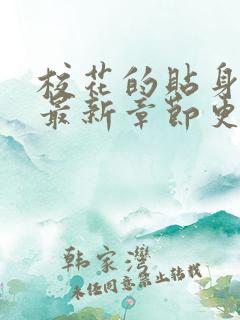 校花的贴身
最新章节更
韩家湾
未经同意禁止转载